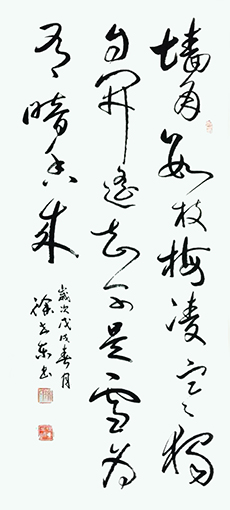 墙角数枝梅凌寒独
自开遥知不是雪为
有暗香来
岁次戊戌春月
徐书东书